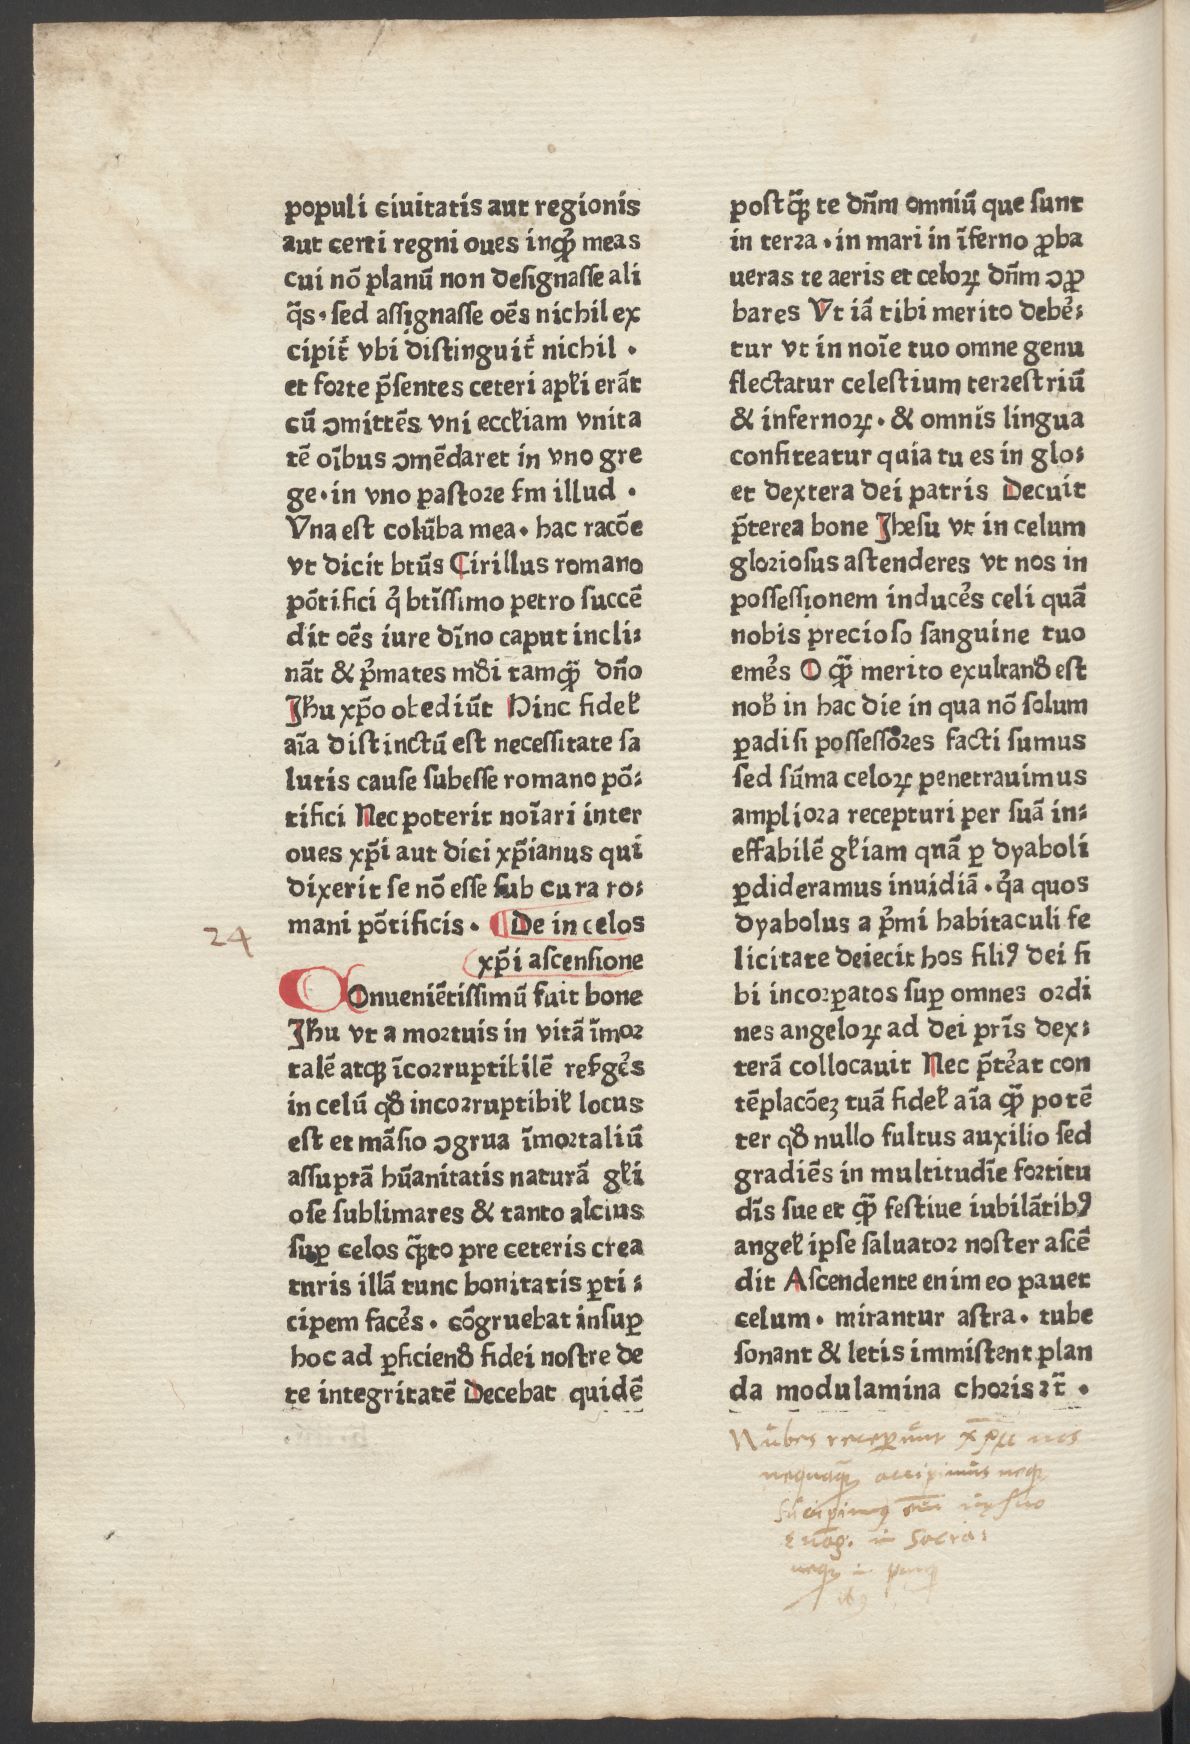 populi ciuitatis aut regionis
aut certi regni oues inqͥꝫ meas
cui nō planū non designasse ali
q̄s · sed assignasse oēs nichil ex
cipit᷑ vbi distinguit᷑ nichil ·
et forte p̄sentes ceteri apłi erāt
cū ꝯmittēs vni eccłiam vnita
tē oībus ꝯmēdaret in vno gre
ge · in vno pastore scđm illud ·
Vna est colūba mea · hac racōe
vt dicit btūs Cirillus romano
pōtifici q̇ btīssimo petro succē
dit oēs iure dīno caput incli⸗
nāt & pͥmates mūdi tamqᷓꝫ dn̄o
Jħu xp̄o obediūt Hinc fideł
aīa distinctū est necessitate sa
lutis cause subesse romano pō⸗
tifici Nec poterit noīari inter
oues xp̄i aut dici xp̄ianus qui
dixerit se nō esse sub cura ro⸗
mani pōtificis · De in celos
xp̄i ascensione
24
Conueniētissimū fuit bone
Jħu vt a mortuis in vitā īmor
talē atqꝫ īcorruptibilē resͬgēs
in celū qđ incorruptibił locus
est et māsio ꝯgrua īmortaliū
assuptā hūanitatis naturā głi
ose sublimares & tanto alcius
suꝑ celos qᷓꝫto pre ceteris crea
turis illā tunc bonitatis ꝑti⸗
cipem facēs · cōgruebat insuꝑ
hoc ad ꝑficienđ fidei nostre de
te integritatē Decebat quidē
postqᷓꝫ te dn̄m omniū que sunt
in terra · in mari in īferno ꝓba
ueras te aeris et celoꝝ dn̄m ꝯꝓ
bares Vt iā tibi merito debē⸗
tur vt in noīe tuo omne genu
flectatur celestium terrestriū
& infernoꝝ · & omnis lingua
confiteatur quia tu es in glo⸗
et dextera dei patris Decuit
p̄terea bone Jhesu vt in celum
gloriosus astenderes vt nos in
possessionem inducēs celi quā
nobis precioso sanguine tuo
emēs O qᷓꝫ merito exultanđ est
nob̄ in hac die in qua nō solum
ꝑadisi possessores facti sumus
sed sūma celoꝝ penetrauimus
ampliora recepturi per suā in⸗
effabilē głiam quā ꝑ dyaboli
ꝑdideramus inuidiā · qͣa quos
dyabolus a pͥmi habitaculi fe
licitate deiecit hos filiꝰ dei si
bi incorꝑatos suꝑ omnes ordi
nes angeloꝝ ad dei pr̄is dex⸗
terā collocauit Nec p̄tēat con
tēplacōeꝫ tuā fideł aīa qᷓꝫ potē
ter qđ nullo fultus auxilio sed
gradiēs in multitudīe fortitu
dīs sue et qᷓꝫ festiue iubilātibꝰ
angeł ipse saluator noster ascē
dit Ascendente enim eo pauet
celum · mirantur astra · tube
sonant & letis immistent plan
da modulamina choris ꝛt̄ ·
Nubes receperūnt xp̄m nos
nequaqᷓꝫ accipimus neqꝫ
in Sacra